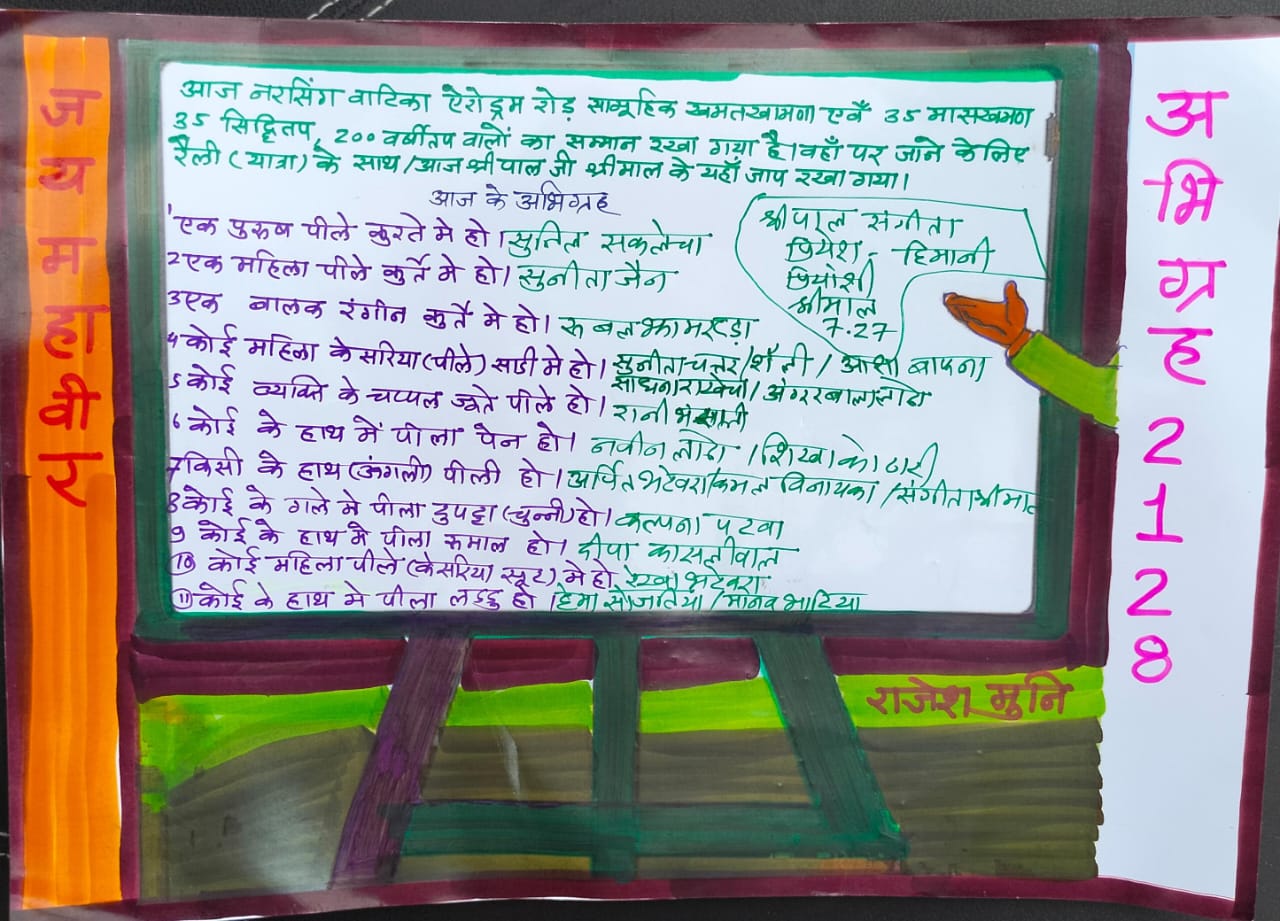 जय महावीर
आज नरसिंग वाटिका ऐरोड्रम रोड़ सामूहिक खमतखामणा एवँ 35 मासखमण
35 सिद्धितप, 200 वर्षीतप वालों का सम्मान रखा गया है। वहाँ पर जाने के लिए
रैली (यात्रा) के साथ/आज श्रीपाल जी श्रीमाल के यहाँ जाप रखा गया।
आज के अभिग्रह
1 एक पुरुष पीले कुरते मे हो। सुनिल सकलेचा
2 एक महिला पीले कुर्ते मे हो। सुनीता जैन
3 एक बालक रंगीन कुर्ते मे हो।
4 कोई महिला केसरिया (पीले) साडी मे हो। सुनीता चत्तर/शैली / आशा बाफना
साधना / 
5 कोई व्यक्ति के चप्पल जूते पीले हो। रानी भंसाली
6 कोई के हाथ में पीला पेन हो। नवीन लोढा /शिखा कोठारी
7 किसी के हाथ (ऊंगली) पीली हो। अर्पित भटेवरा/कमल विनायका /संगीता श्रीमाल
8 कोई के गले मे पीला दुपट्टा (चुन्नी) हो। कल्पना पटवा
9 कोई के हाथ मे पीला रुमाल हो। दीपा कासलीवाल
10 कोई महिला पीले (केसरिया सूट) मे हो रेखा भटेवरा
11 कोई के हाथ मे पीला लड्डु हो। हेमा सोजतिया /मानव भाटिया
श्रीपाल संगीता
प्रियेश - हिमानी
प्रियांशी
श्रीमाल
7.27
राजेश मुनि
अभिग्रह 2128